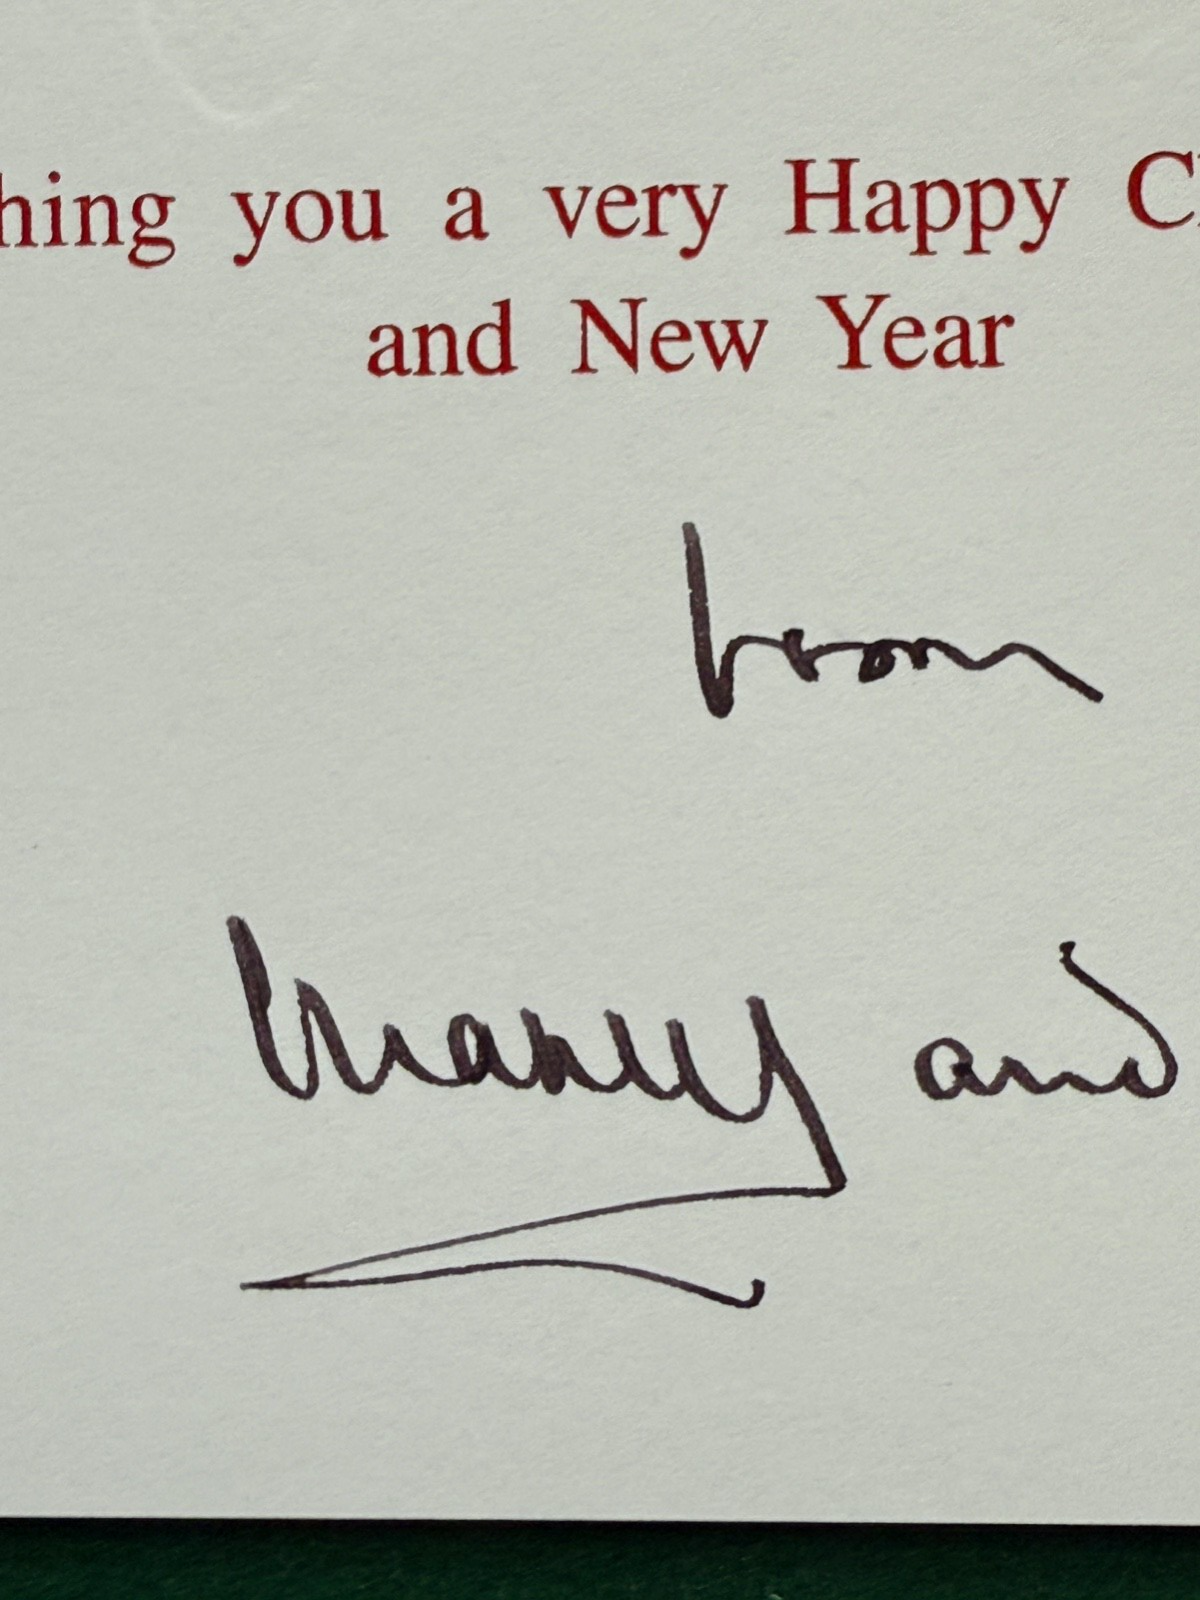 hing you a very Happy C
and New Year
from
and